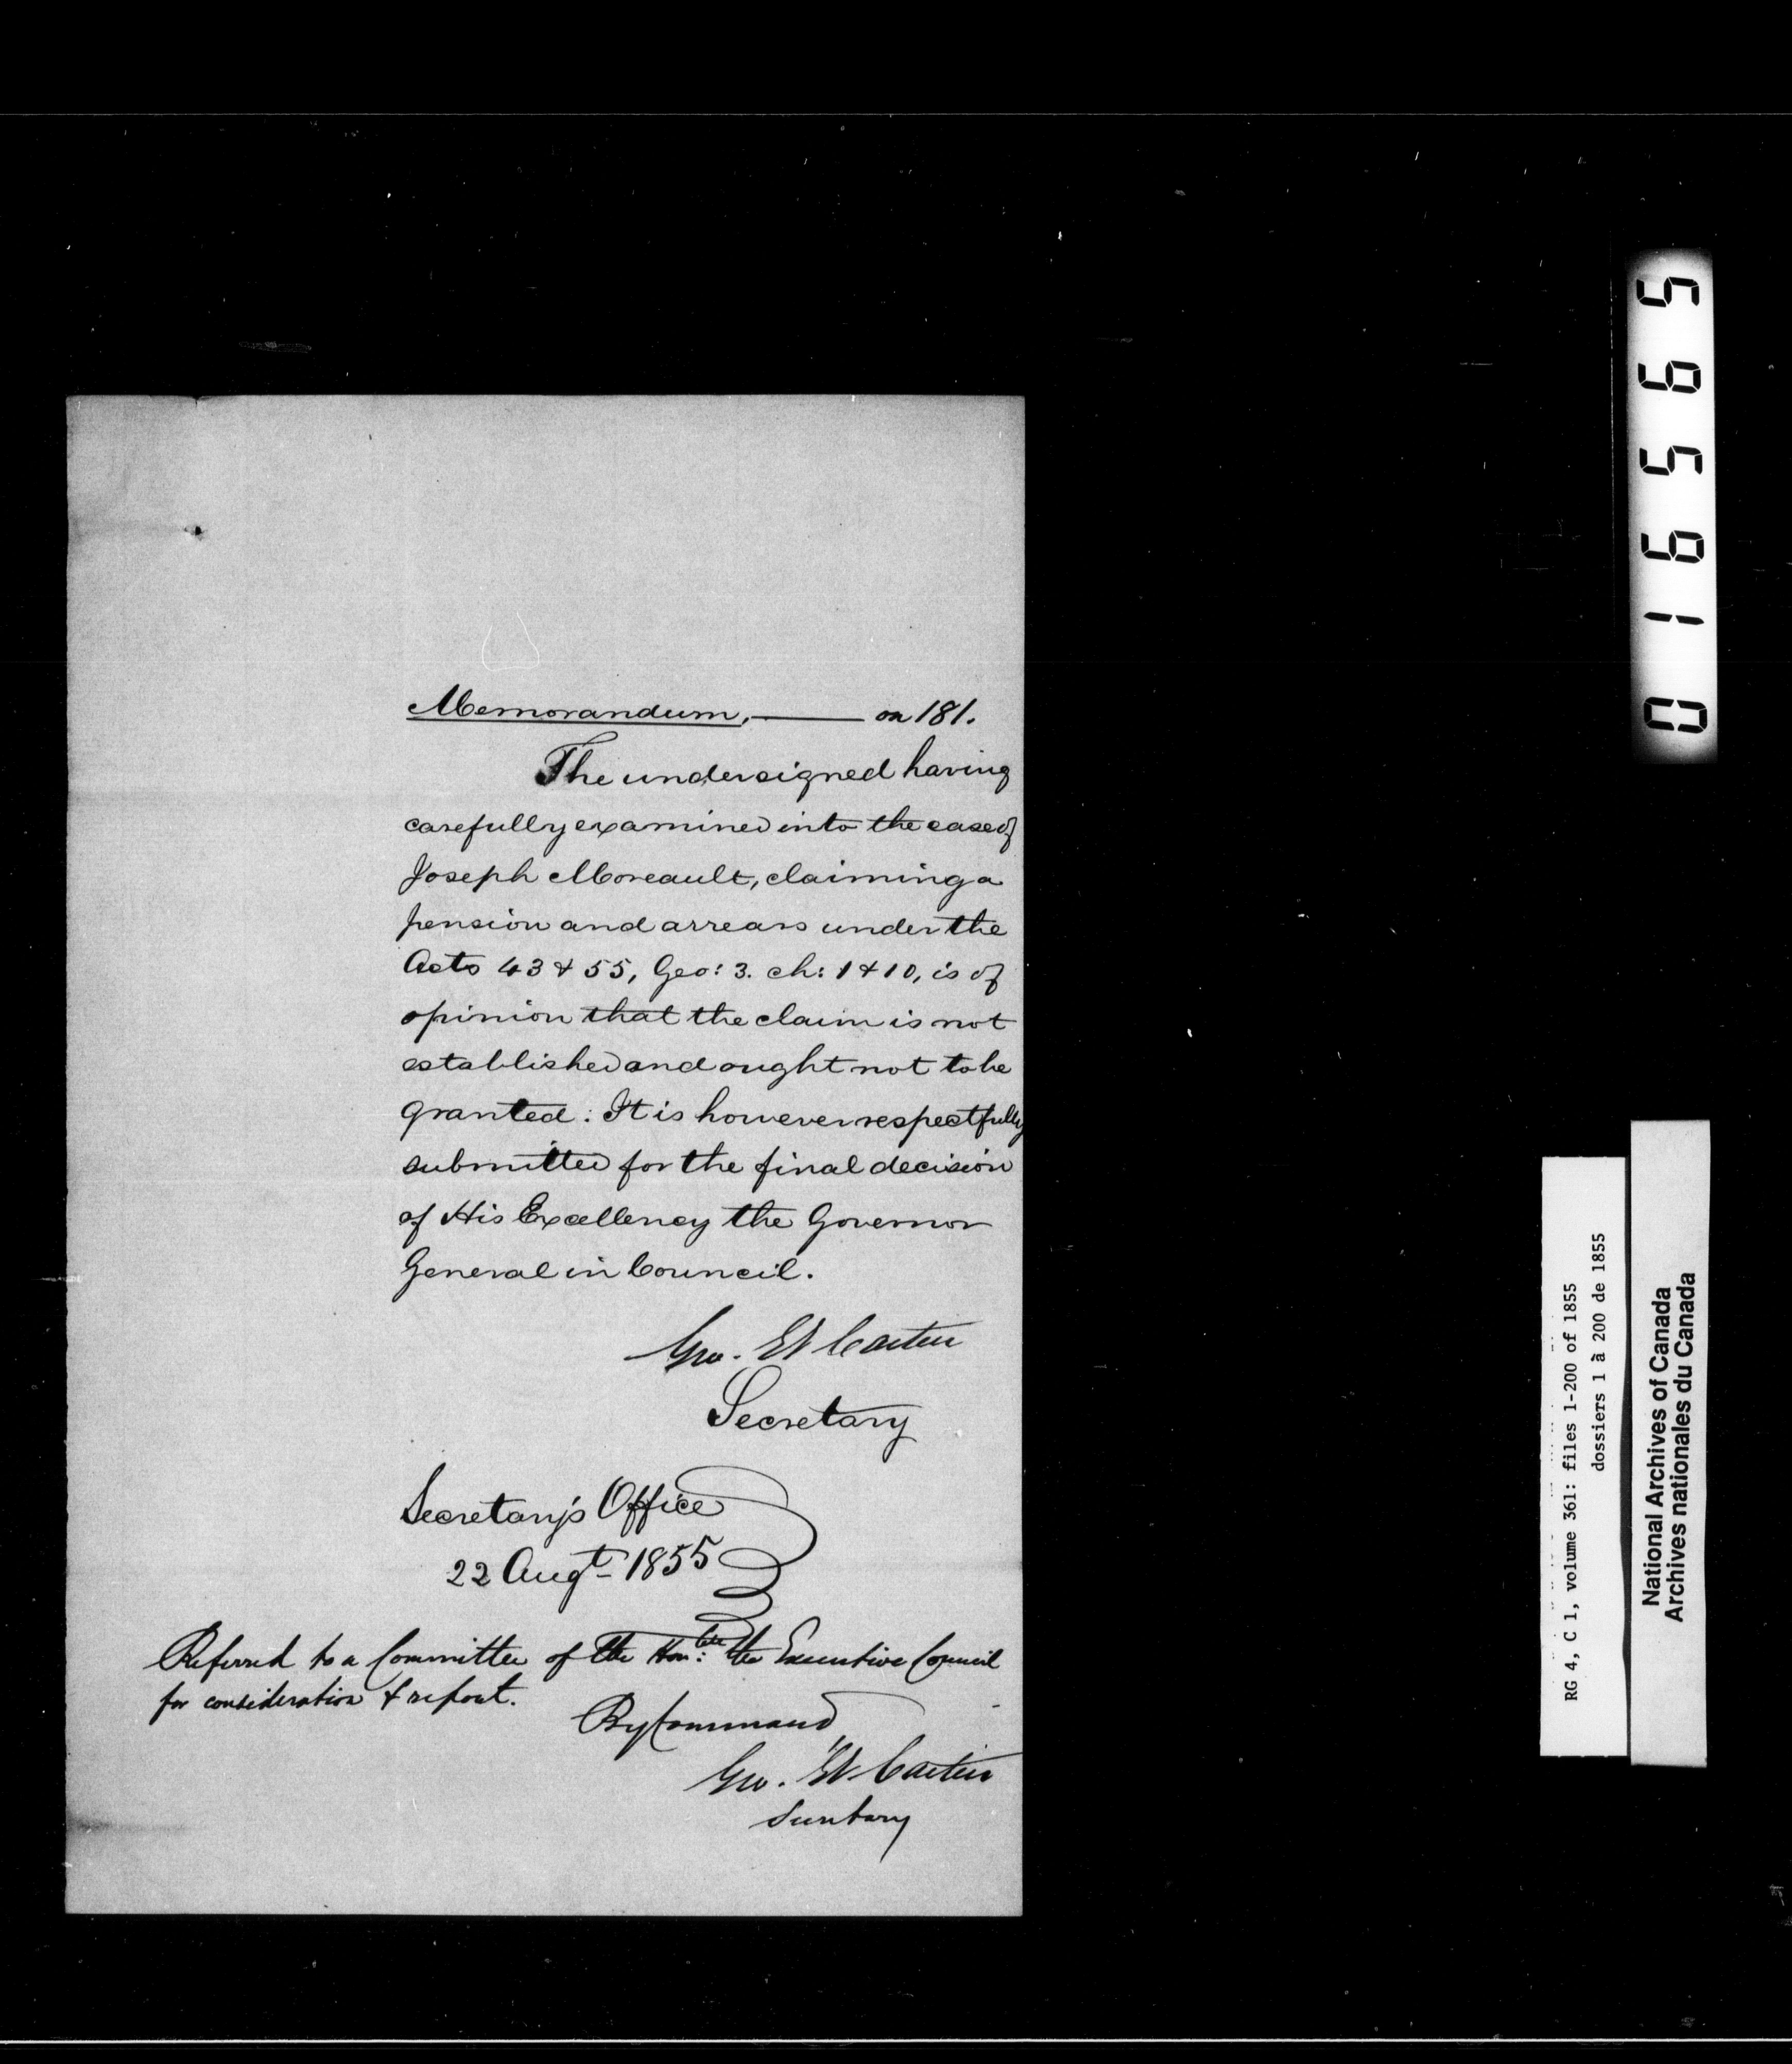 Memorandum, —— on 181.
The undersigned having
carefully examined into the case of
Joseph Moreault, claiming a
pension and arrears under the
Acts 43 & 55, Geo: 3. ch: 1 & 10, is of
opinion that the claim is not
established and ought not to be
granted: It is however respectfully
submitted for the final decision
of His Excellency the Governor
General in Council.
Geo. Et Cartier
Secretary
Secretary's Office
22 Augt 1855
Referred to a Committee of the Honble: the Executive Council
for consideration & report.
By Command
Geo. Et Cartier
Secretary
016565
RG 4, C 1, volume 361: files 1-200 of 1855
dossiers 1 à 200 de 1855
National Archives of Canada
Archives nationales du Canada